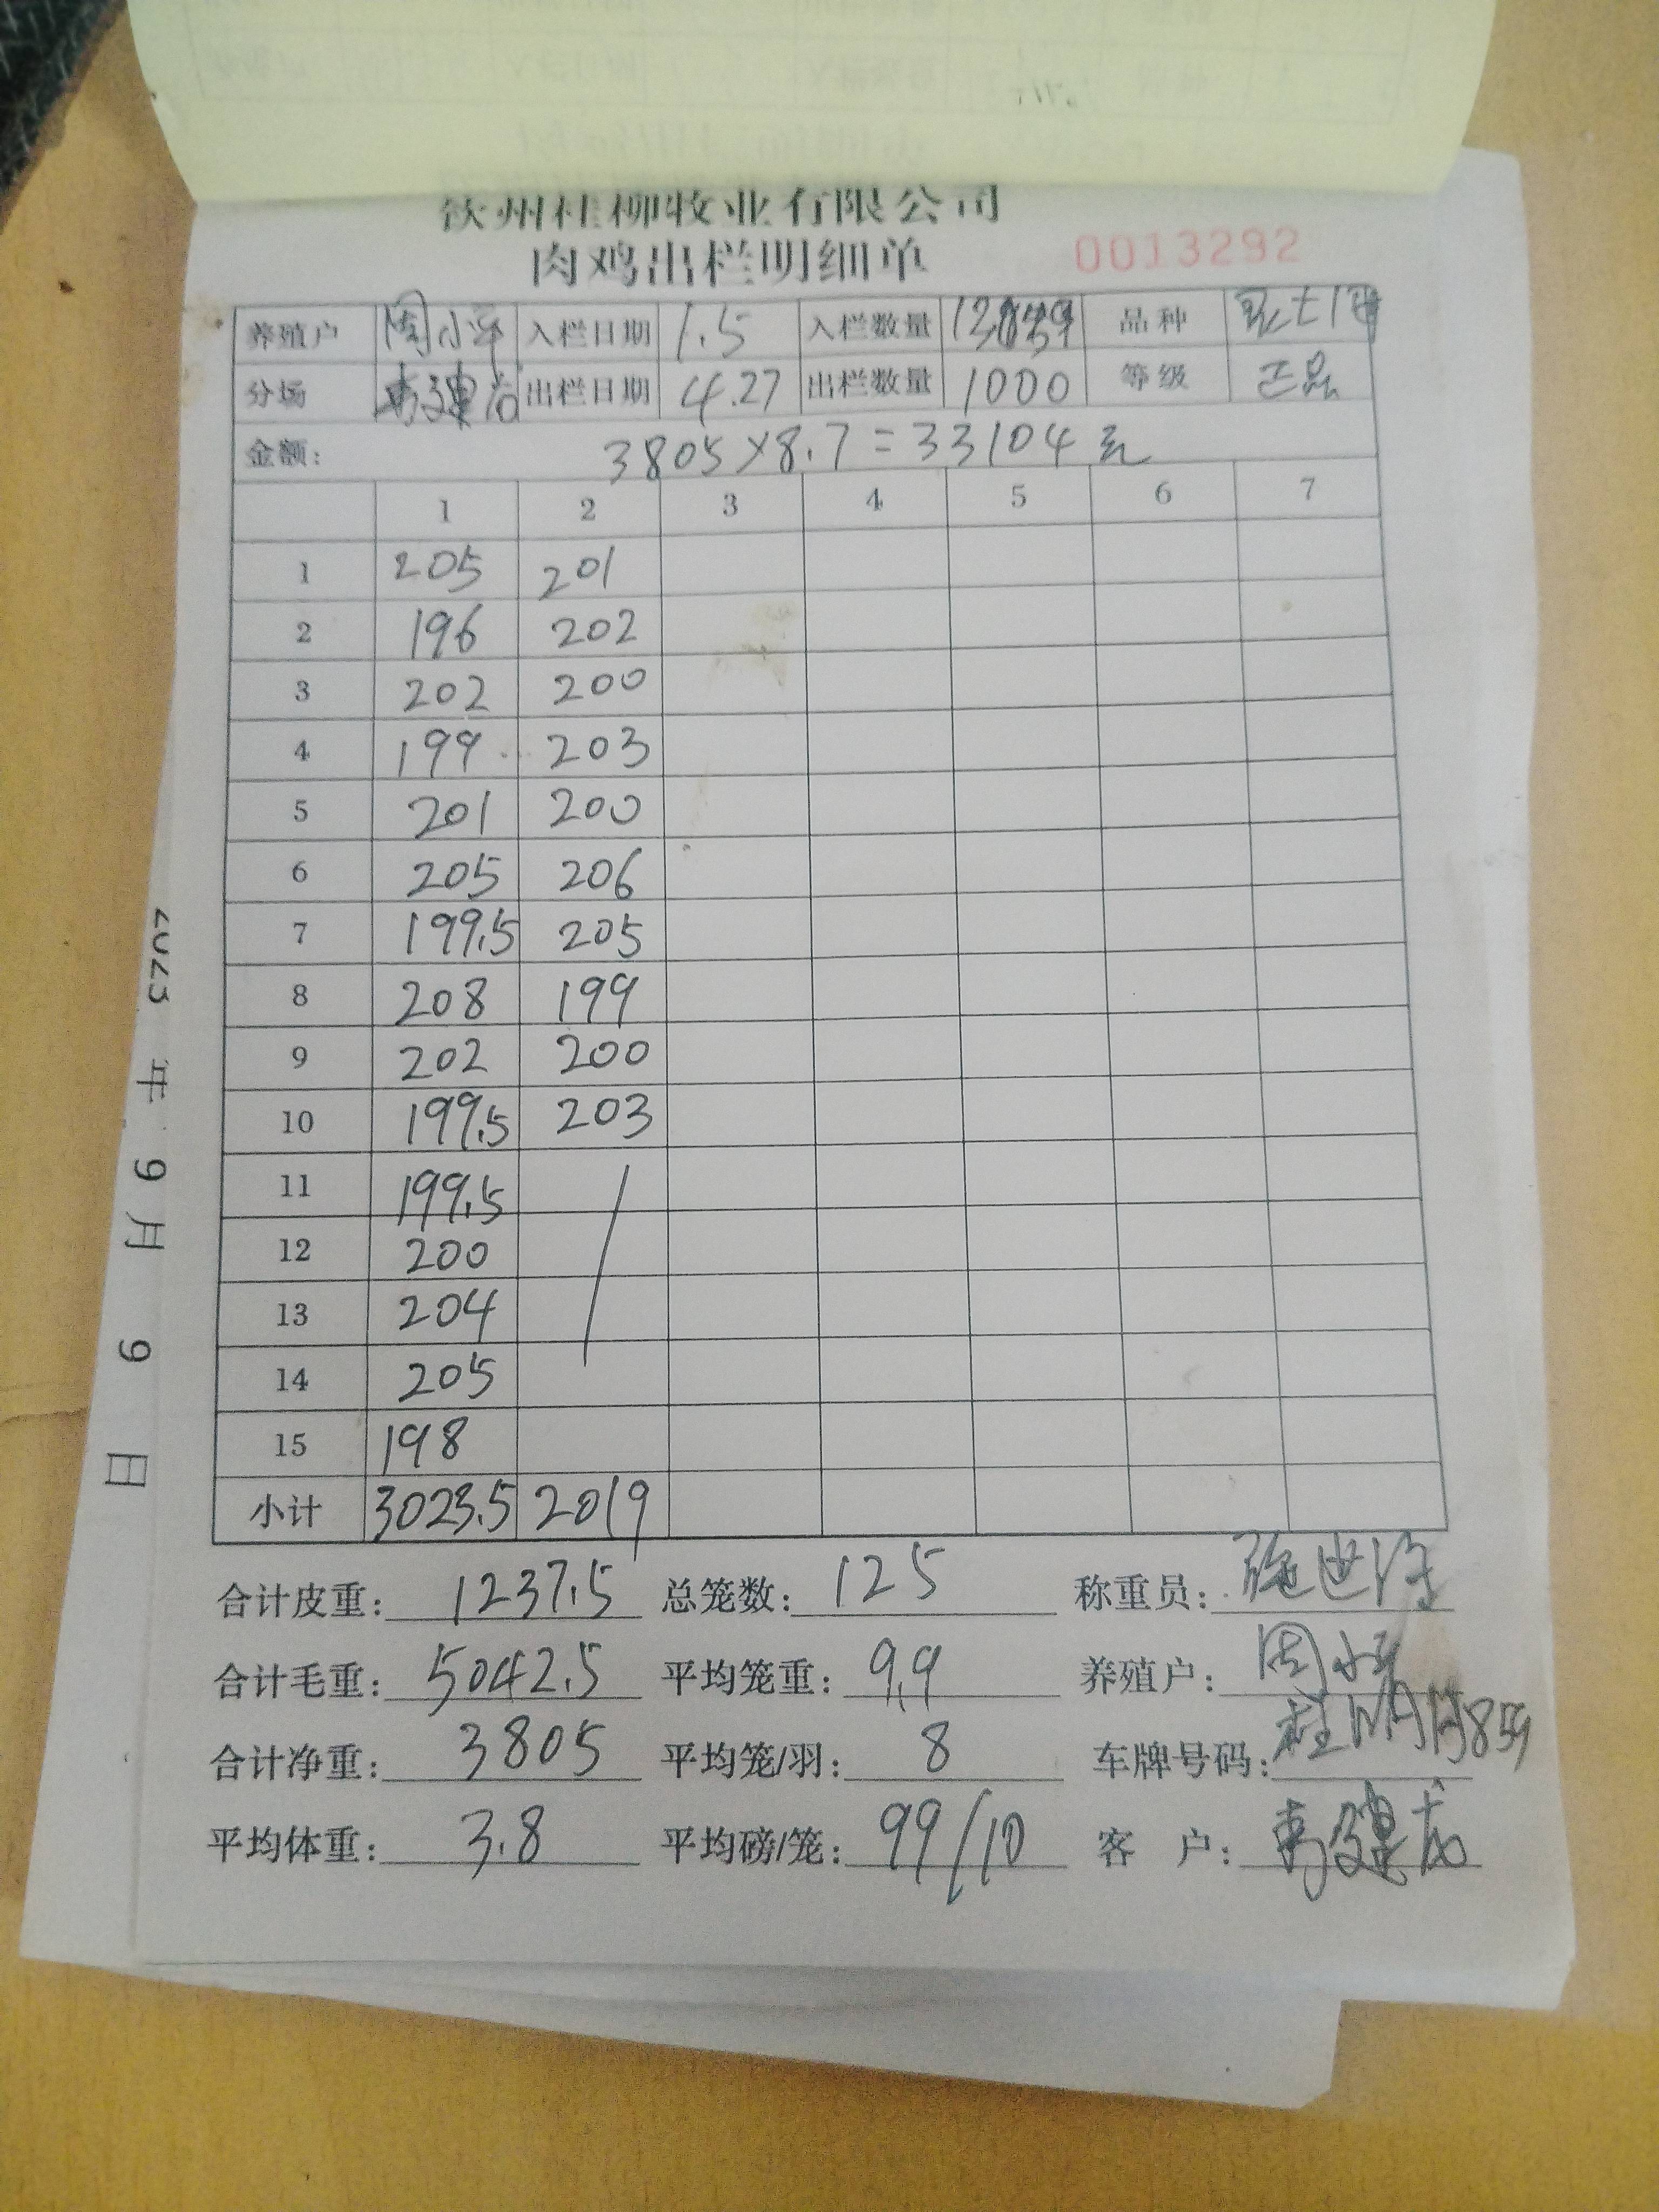 钦州桂柳牧业有限公司
肉鸡出栏明细单 0013292
养殖户 周小 入栏日期 1.5 入栏数量 品种
分场 出栏日期 4.27 出栏数量 1000 等级 正品
金额: 3805×8.7=33104元
1 2 3 4 5 6 7
1 205 201
2 196 202
3 202 200
4 199 203
5 201 200
6 205 206
7 199.5 205
8 208 199
9 202 200
10 199.5 203
11 199.5
12 200
13 204
14 205
15 198
小计 3023.5 2019
合计皮重: 1237.5 总笼数: 125 称重员:
合计毛重: 5042.5 平均笼重: 9.9 养殖户: 周小
合计净重: 3805 平均笼/羽: 8 车牌号码: 桂
平均体重: 3.8 平均磅/笼: 99/10 客 户:
年 9 月 9 日